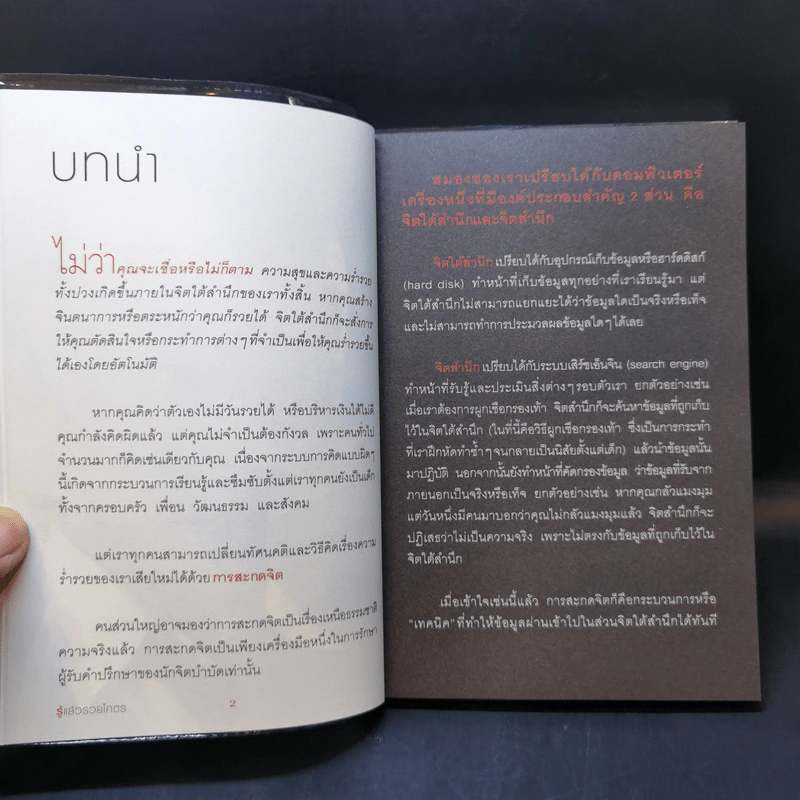 บทนำ
ไม่ว่าคุณจะเชื่อหรือไม่ก็ตาม ความสุขและความร่ำรวย
ทั้งปวงเกิดขึ้นภายในจิตใต้สำนึกของเราทั้งสิ้น หากคุณสร้าง
จินตนาการหรือตระหนักว่าคุณก็รวยได้ จิตใต้สำนึกก็จะสั่งการ
ให้คุณตัดสินใจหรือกระทำการต่างๆ ที่จำเป็นเพื่อให้คุณร่ำรวยขึ้น
ได้เองโดยอัตโนมัติ
หากคุณคิดว่าตัวเองไม่มีวันรวยได้ หรือบริหารเงินได้ไม่ดี
คุณกำลังคิดผิดแล้ว แต่คุณไม่จำเป็นต้องกังวล เพราะคนทั่วไป
จำนวนมากก็คิดเช่นเดียวกับคุณ เนื่องจากระบบการคิดแบบผิดๆ
นี้เกิดจากกระบวนการเรียนรู้และซึมซับตั้งแต่เราทุกคนยังเป็นเด็ก
ทั้งจากครอบครัว เพื่อน วัฒนธรรม และสังคม
แต่เราทุกคนสามารถเปลี่ยนทัศนคติและวิธีคิดเรื่องความ
ร่ำรวยของเราเสียใหม่ได้ด้วย การสะกดจิต
คนส่วนใหญ่อาจมองว่าการสะกดจิตเป็นเรื่องเหนือธรรมชาติ
ความจริงแล้ว การสะกดจิตเป็นเพียงเครื่องมือหนึ่งในการรักษา
ผู้รับคำปรึกษาของนักจิตบำบัดเท่านั้น
รู้แล้วรวยโคตร 2
สมองของเราเปรียบได้กับคอมพิวเตอร์
เครื่องหนึ่งที่มีองค์ประกอบสำคัญ 2 ส่วน คือ
จิตใต้สำนึกและจิตสำนึก
จิตใต้สำนึก เปรียบได้กับอุปกรณ์เก็บข้อมูลหรือฮาร์ดดิสก์
(hard disk) ทำหน้าที่เก็บข้อมูลทุกอย่างที่เราเรียนรู้มา แต่
จิตใต้สำนึกไม่สามารถแยกแยะได้ว่าข้อมูลใดเป็นจริงหรือเท็จ
และไม่สามารถทำการประมวลผลข้อมูลใดๆ ได้เลย
จิตสำนึก เปรียบได้กับระบบเสิร์ชเอ็นจิน (search engine)
ทำหน้าที่รับรู้และประเมินสิ่งต่างๆ รอบตัวเรา ยกตัวอย่างเช่น
เมื่อเราต้องการผูกเชือกรองเท้า จิตสำนึกก็จะค้นหาข้อมูลที่ถูกเก็บ
ไว้ในจิตใต้สำนึก (ในที่นี้คือวิธีผูกเชือกรองเท้า ซึ่งเป็นการกระทำ
ที่เราฝึกหัดทำซ้ำๆ จนกลายเป็นนิสัยตั้งแต่เด็ก) แล้วนำข้อมูลนั้น
มาปฏิบัติ นอกจากนั้นยังทำหน้าที่คัดกรองข้อมูล ว่าข้อมูลที่รับจาก
ภายนอกเป็นจริงหรือเท็จ ยกตัวอย่างเช่น หากคุณกลัวแมงมุม
แต่วันหนึ่งมีคนมาบอกว่าคุณไม่กลัวแมงมุมแล้ว จิตสำนึกก็จะ
ปฏิเสธว่าไม่เป็นความจริง เพราะไม่ตรงกับข้อมูลที่ถูกเก็บไว้ใน
จิตใต้สำนึก
เมื่อเข้าใจเช่นนี้แล้ว การสะกดจิตก็คือกระบวนการหรือ
"เทคนิค" ที่ทำให้ข้อมูลผ่านเข้าไปในส่วนจิตใต้สำนึกได้ทันที